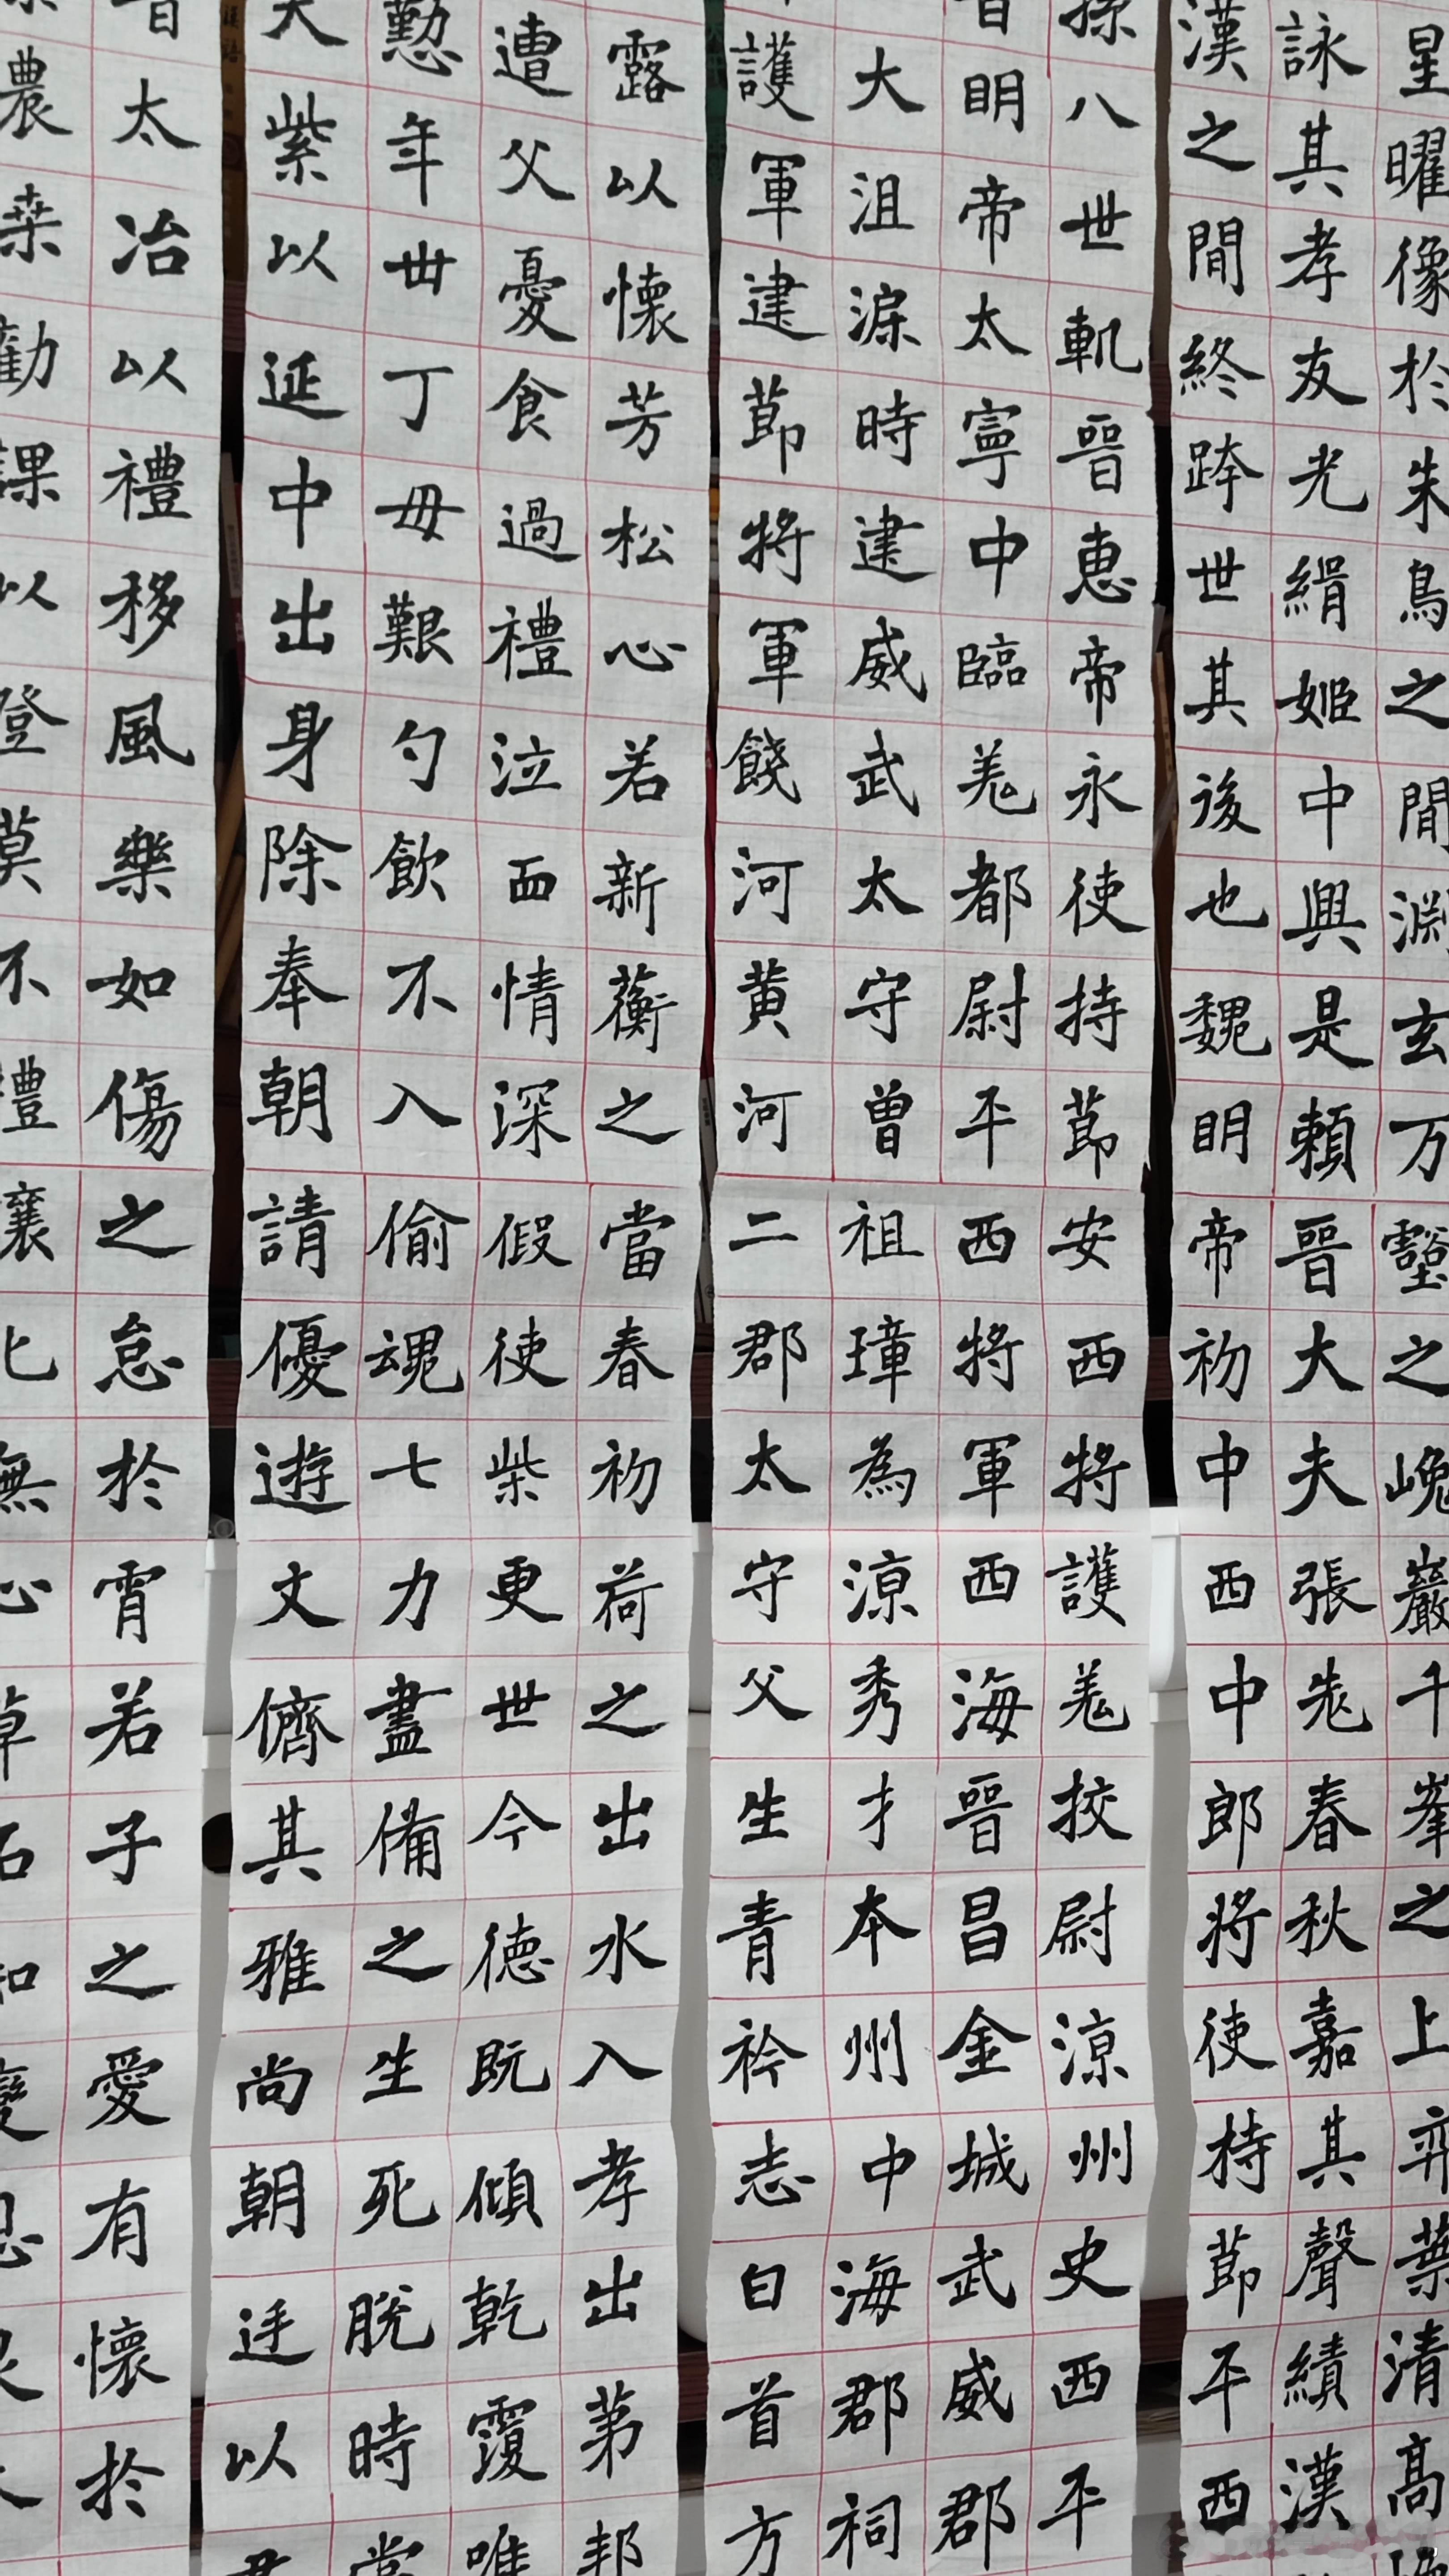 星曜像於朱鳥之間淵玄万壑之峻巖千峯之上弈葉清高
詠其孝友光緝姬中興是賴晉大夫張老春秋嘉其聲績漢
漢之間終跨世其後也魏明帝初中西中郎將使持節平西
孫八世軌晉惠帝永使持節安西將護羌挍尉涼州史西平
晉明帝太寧中臨羌都尉平西將軍西海晉昌金城武威郡
大沮渠時建威武太守曾祖璋為涼秀才本州中海郡祠
護軍建節將軍饒河黃河二郡太守父生青衿志白首方
露以懷芳松心若新蘅之當春初荷之出水入孝出第邦
遭父憂食過禮泣血情深假使柴更世今德既傾乾覆唯
懃年丗丁毋艱勺飲不入偷魂七力盡俻之生死脫時當
大紫以延中出身除奉朝請優遊文儕其雅尚朝廷以君
昔太治以禮移風樂如傷之怠於宵若子之愛有懷於
農桒勸課以登莫不禮襄化無心草石知變恩